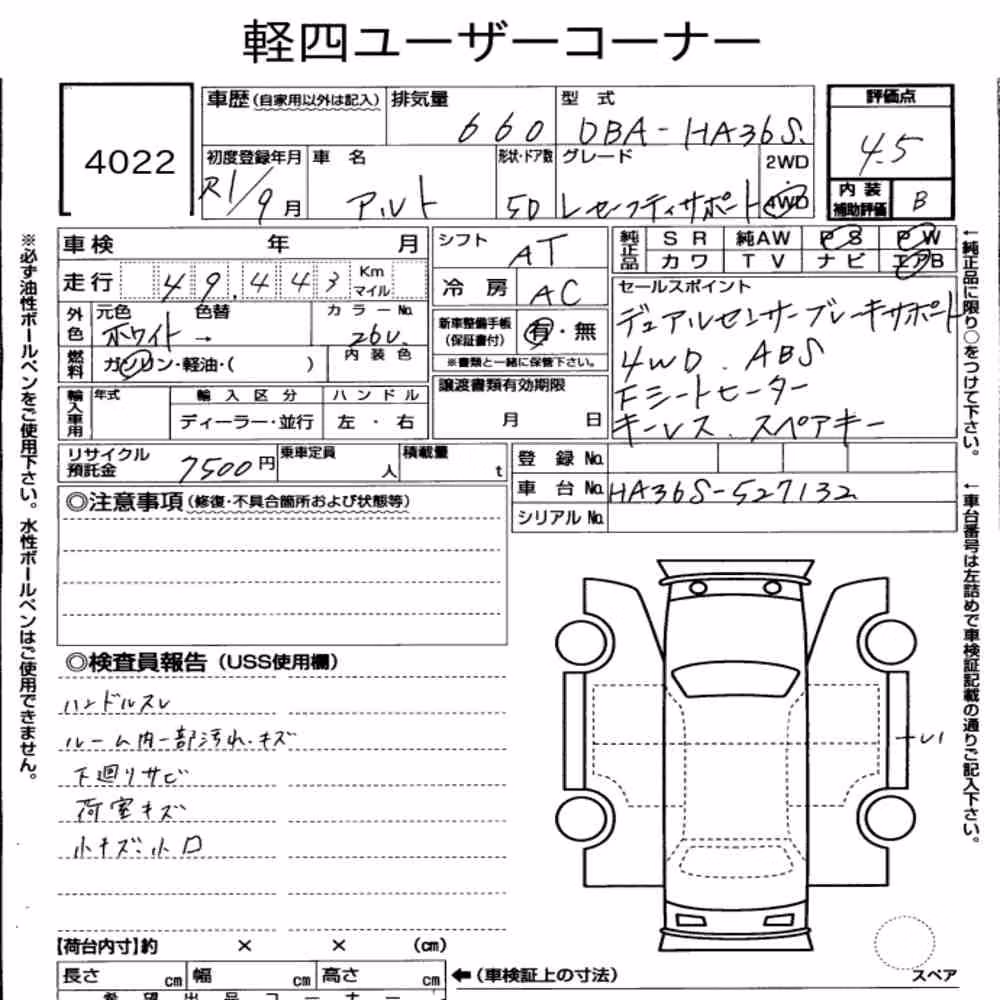 軽四ユーザーコーナー
4022
車歴(自家用以外は記入) 排気量 660 型式 DBA-HA36S.
評価点 4.5
初度登録年月 R1/9月 車名 アルト 形状・ドア数 5D グレード Lセーフティサポート 2WD・4WD
内装補助評価 B
車検 年 月
走行 49,443 Km マイル
外色 元色 ホワイト → 色替 カラーNo. 26U.
燃料 ガソリン・軽油・( ) 内装色
輸入車用 年式 輸入区分 ディーラー・並行 ハンドル 左・右
シフト AT
冷房 AC
新車整備手帳(保証書付) 有・無
※書類と一緒に保管下さい。
譲渡書類有効期限
月 日
純正品 SR 純AW PS PW
カワ TV ナビ エアB
セールスポイント
デュアルセンサーブレーキサポート
4WD. ABS
Fシートヒーター
キーレス、スペアキー
リサイクル預託金 7500円 乗車定員 人 積載量 t
登録No.
車台No. HA36S-527132
シリアルNo.
◎注意事項(修復・不具合箇所および状態等)
◎検査員報告(USS使用欄)
ハンドルスレ
ルーム内一部汚れ・キズ
下廻りサビ
荷室キズ
小キズ・小凹
【荷台内寸】約 × × (cm)
長さ cm 幅 cm 高さ cm ←(車検証上の寸法)
スペア
希望出品コーナー
※必ず油性ボールペンをご使用下さい。水性ボールペンはご使用できません。
←純正品に限り○をつけて下さい。
←車台番号は左詰めで車検証記載の通りご記入下さい。